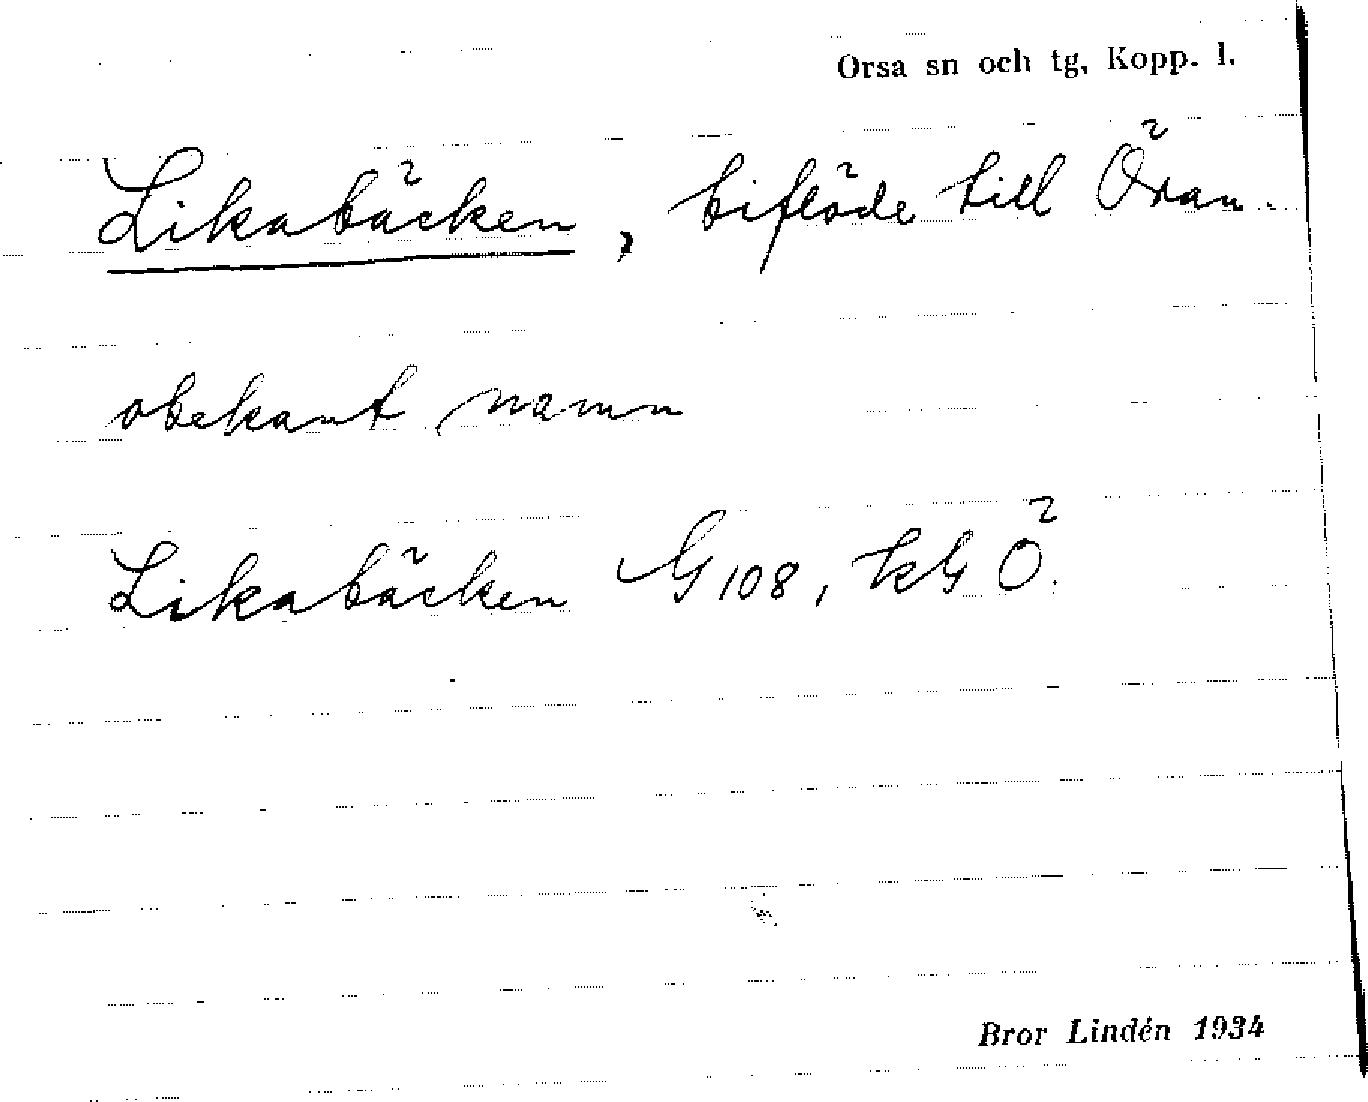 Orsa sn och tg, Kopp. l.
Likabäcken, biflöde till Öran.
obekant namn
Likabäcken G 108, kG Ö.
Bror Lindén 1934